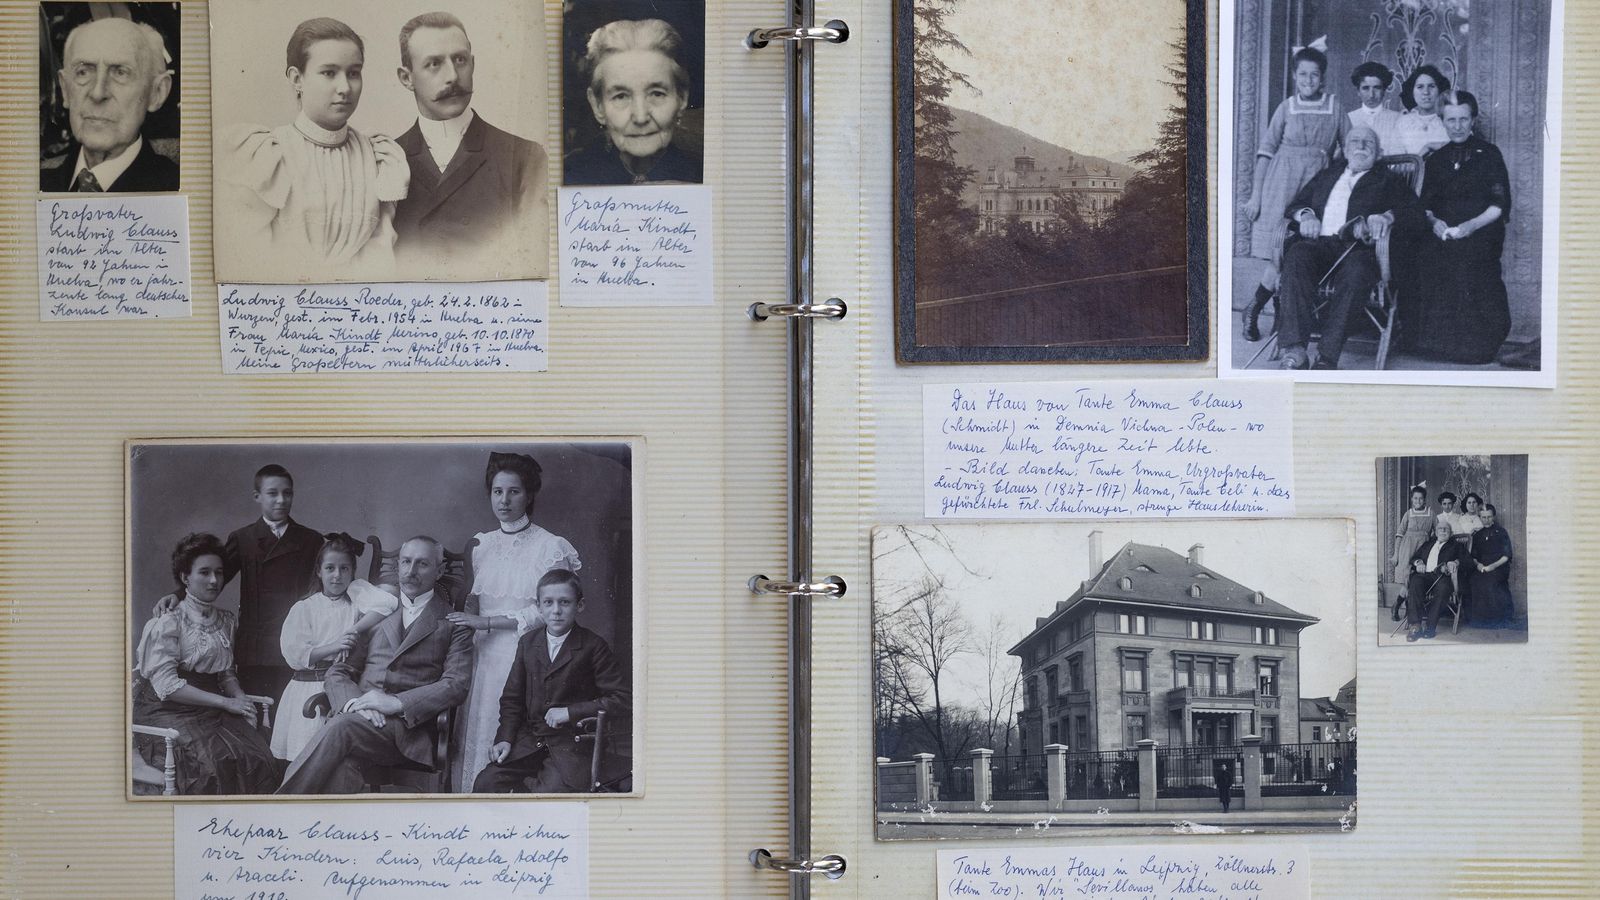 Großvater
Ludwig Clauss
starb im Alter
von 92 Jahren in
Huelva, wo er jahr-
zente lang deutscher
Konsul war.
Großmutter
María Kindt,
starb im Alter
von 96 Jahren
in Huelva.
Ludwig Clauss Roeder, geb. 24.2.1862 in
Wurzen, gest. im Febr. 1954 in Huelva u. seine
Frau María Kindt Merino, geb. 10.10.1870
in Tepic, Mexico, gest. im April 1967 in Huelva.
Meine Großeltern mütterlicherseits.
Ehepaar Clauss-Kindt mit ihren
vier Kindern: Luis, Rafaela, Adolfo
u. Araceli. Aufgenommen in Leipzig
Das Haus von Tante Emma Clauss
(Schmidt) in Demnia Vichna - Polen - wo
unsere Mutter längere Zeit lebte.
- Bild daneben: Tante Emma, Urgroßvater
Ludwig Clauss (1847-1917) Mama, Tante Celi u. das
gefürchtete Frl. Schulmeyer, strenge Hauslehrerin.
Tante Emmas Haus in Leipzig, Zöllnerstr. 3
(beim Zoo). Wir "Sevillanos" haben alle